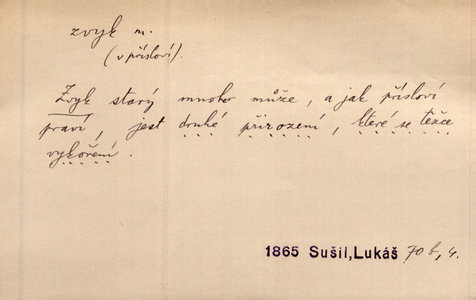 zvyk m.
(v přísloví).
Zvyk starý mnoho může, a jak přísloví
praví, jest druhé přirození, které se težce
vykoření.
1865 Sušil, Lukáš 70 b, 4.